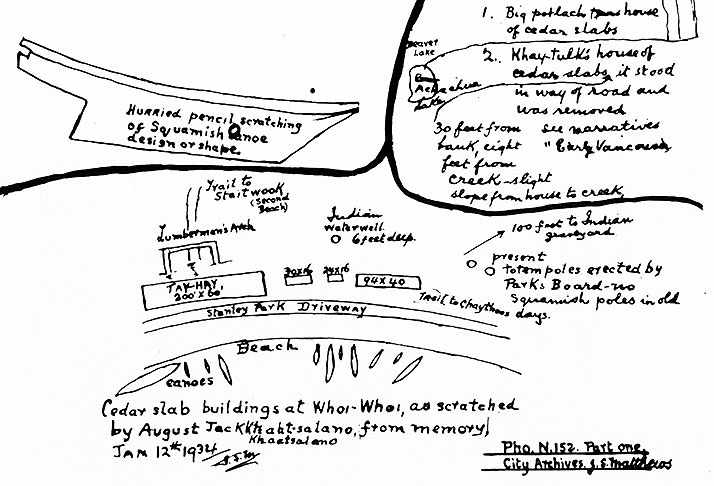 1. Big potlach house
of cedar slabs
2. Khay-tulk's house of
cedar slabs, it stood
in way of road and
was removed
see narratives
"Early Vancouver
Beaver
Lake
Ahkachua
Lake
30 feet from
bank, eight
feet from
creek-slight
slope from house to creek,
Hurried pencil scratching
of Squamish Canoe
design or shape.
Trail to
Stait-wook
(Second
Beach)
Lumberman's Arch
Indian
water well
6 feet deep.
100 feet to Indian
graveyard.
present
totem poles erected by
Parks Board-no
Squamish poles in old
days.
TAY-HAY,
200' X 60'
20X16
24X16
94 X 40
Trail to Chaythoos
Stanley Park Driveway
Beach
canoes
Cedar slab buildings at Whoi-Whoi, as scratched
by August Jack Khaht-salano, from memory,
Khaatsalano
JAN 12th 1934
Pho. N.152. Part one,
City Archives. J.S. Matthews